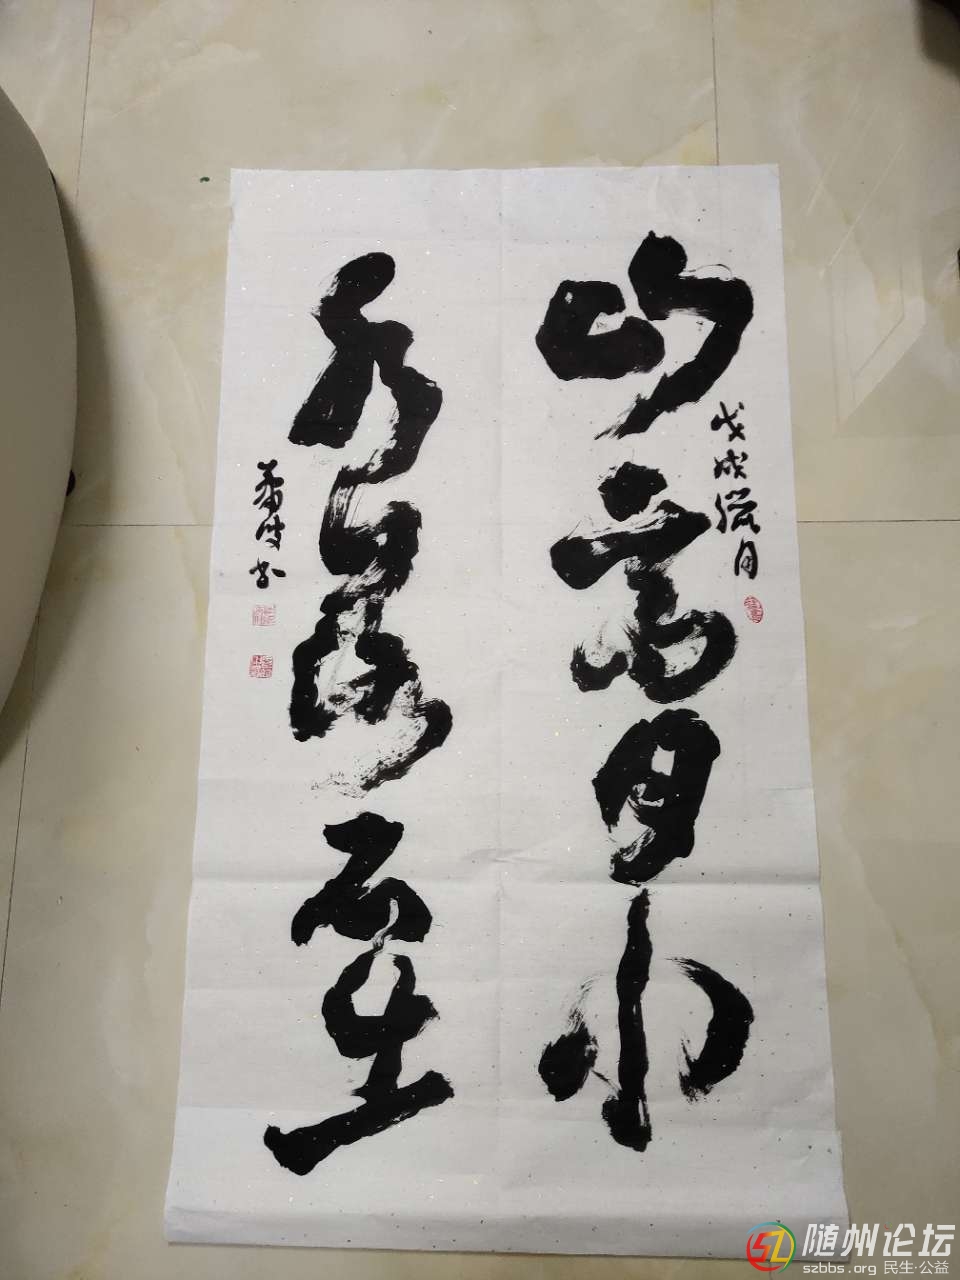 山高月小
戊戌腊月
水落石出
书
随州论坛
szbbs.org 民生·公益